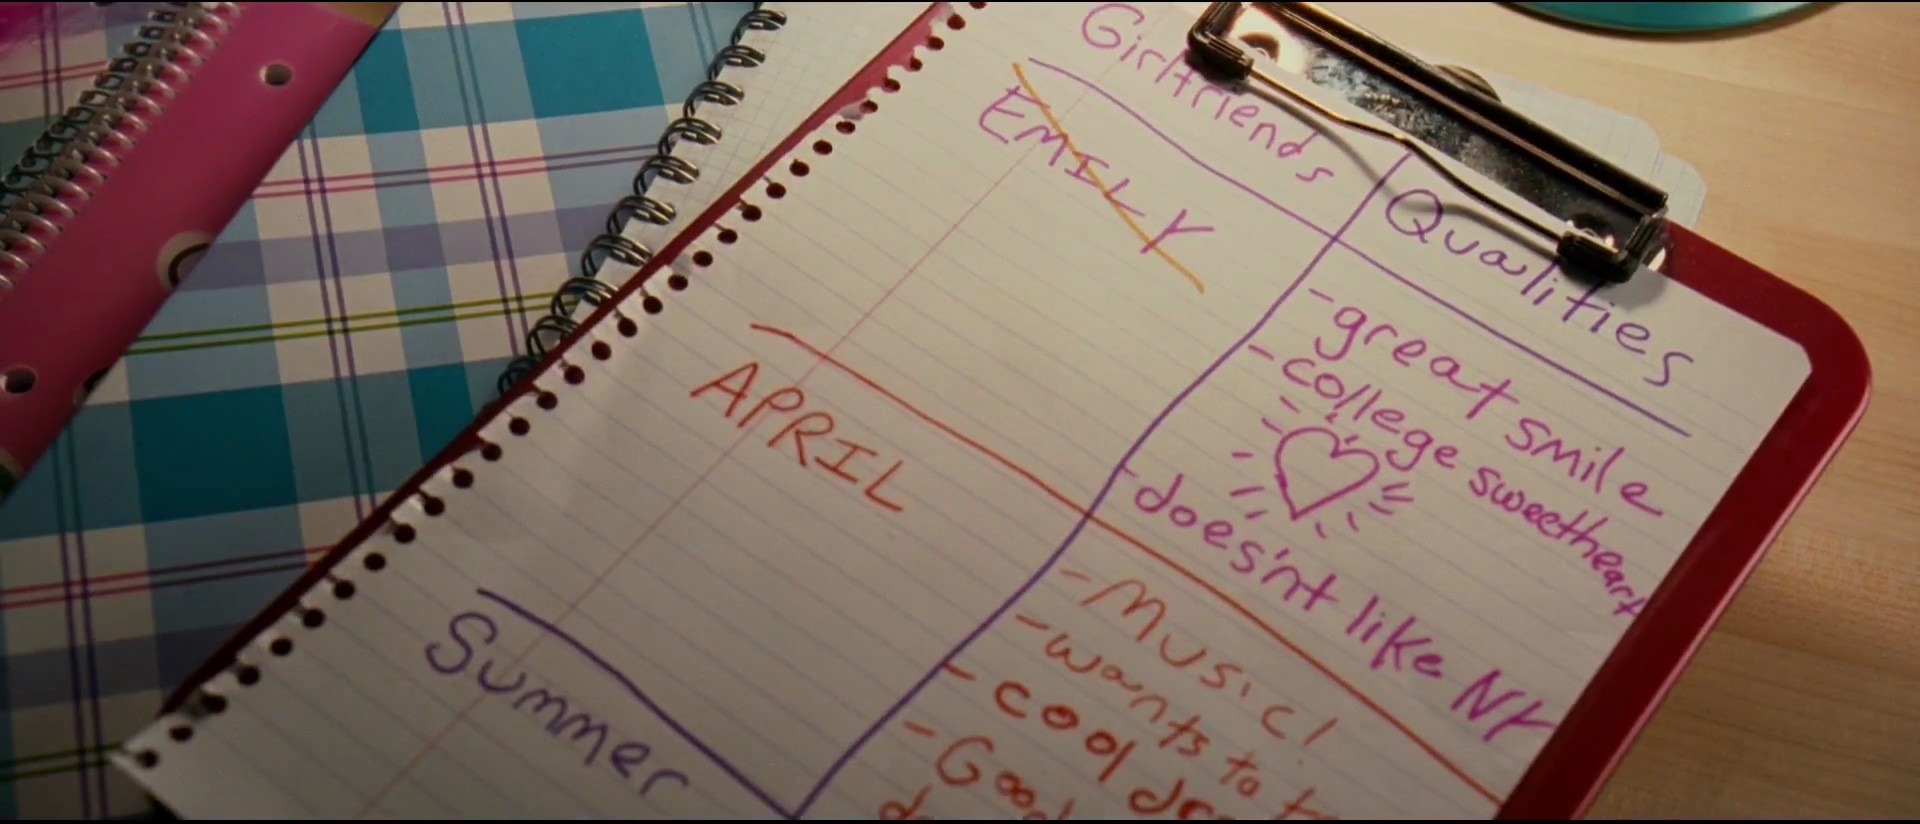 Girlfriends
Qualities
EMILY
- great smile
- college sweetheart
- does'nt like NY
APRIL
- Music!
- wants to
- cool
- Good
Summer